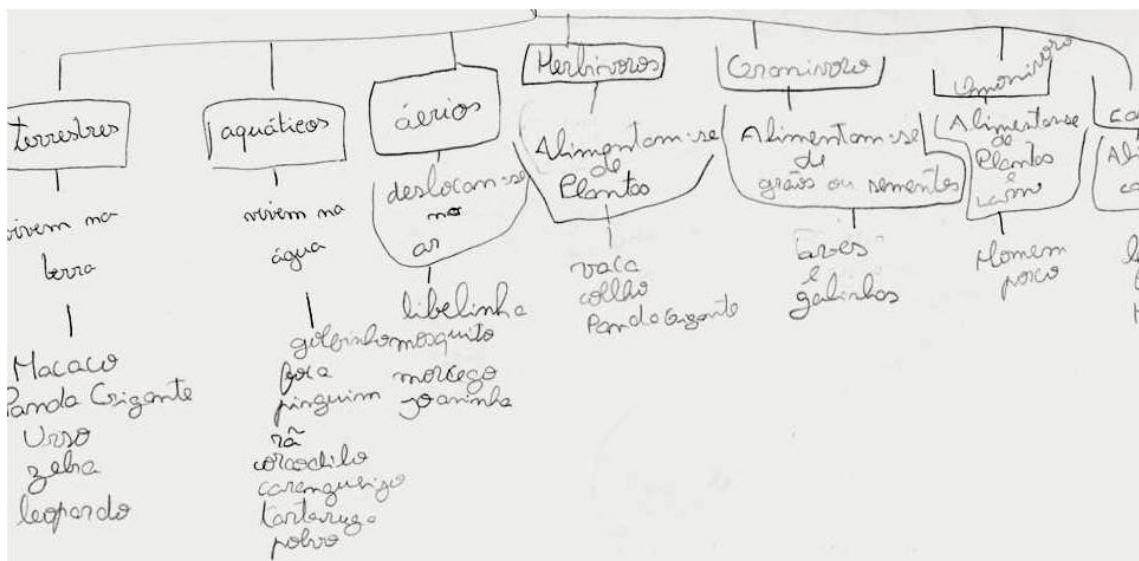 terrestres
vivem na
terra
Macaco
Panda Gigante
Urso
zebra
leopardo
aquáticos
vivem na
água
golfinho
foca
pinguim
rã
corcodilo
carangueijo
tartaruga
polvo
áerios
deslocam-se
no
ar
libelinha
mosquito
morcego
joaninha
Herbívoros
Alimentam-se
de
Plantas
vaca
coelho
Panda Gigante
Granivoro
Alimentam-se
de
grãos ou sementes
aves
e
galinhas
Omonivoro
Alimentam-se
de
Plantas
e
carn
Homem
porco
Ali